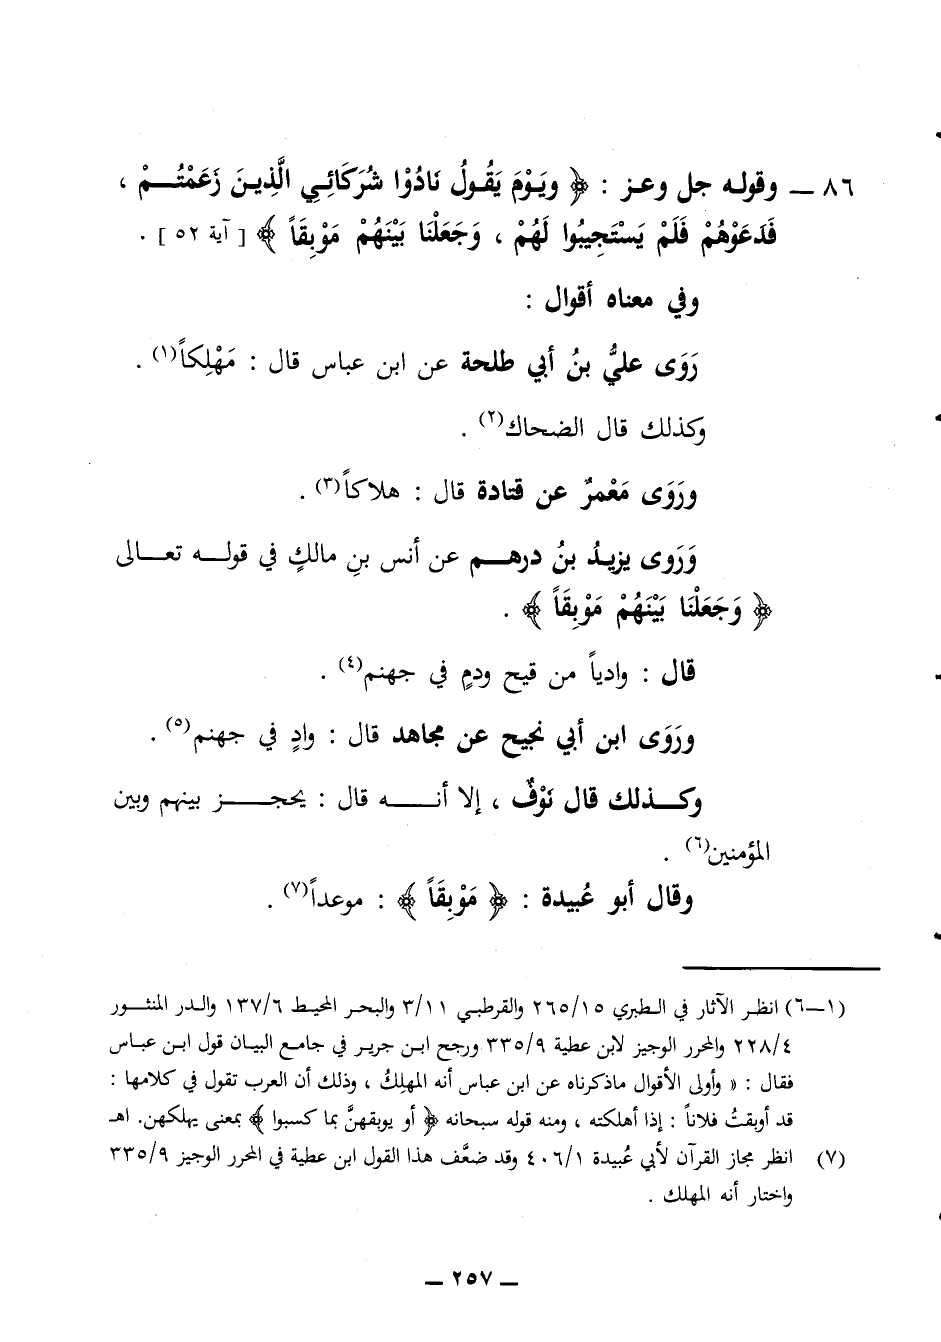 ٨٦ ــ وقوله جل وعز : ﴿ ويَوْمَ يَقُولُ نَادُوْا شُرَكَائِي الَّذِينَ زَعَمْتُمْ ،
فَدَعَوْهُمْ فَلَمْ يَسْتَجِيبُوا لَهُمْ ، وَجَعَلْنَا بَيْنَهُمْ مَوْبِقَاً ﴾ [ آية ٥٢ ] .
وفي معناه أقوال :
رَوَى عليُّ بنُ أبي طلحة عن ابن عباس قال : مَهْلِكاً(١) .
وكذلك قال الضحاك(٢) .
ورَوَى مَعْمرٌ عن قتادة قال : هلاكاً(٣) .
وَرَوى يزيدُ بنُ درهم عن أنس بنِ مالكٍ في قوله تعالى
﴿ وَجَعَلْنَا بَيْنَهُمْ مَوْبِقَاً ﴾ .
قال : وادياً من قيح ودمٍ في جهنم(٤) .
ورَوَى ابن أبي نجيح عن مجاهد قال : وادٍ في جهنم(٥) .
وكذلك قال نَوْفٌ ، إلا أنه قال : يحجز بينهم وبين
المؤمنين(٦) .
وقال أبو عُبيدة : ﴿ مَوْبِقَاً ﴾ : موعداً(٧) .
(١ــ٦) انظر الآثار في الطبري ٢٦٥/١٥ والقرطبي ٣/١١ والبحر المحيط ١٣٧/٦ والدر المنثور
٢٢٨/٤ والمحرر الوجيز لابن عطية ٣٣٥/٩ ورجح ابن جرير في جامع البيان قول ابن عباس
فقال : « وأولى الأقوال ماذكرناه عن ابن عباس أنه المهلِكُ ، وذلك أن العرب تقول في كلامها :
قد أوبقتُ فلاناً : إذا أهلكته ، ومنه قوله سبحانه ﴿ أو يوبقهنَّ بما كسبوا ﴾ بمعنى يهلكهن. اهـ
(٧) انظر مجاز القرآن لأبي عُبيدة ٤٠٦/١ وقد ضعَّف هذا القول ابن عطية في المحرر الوجيز ٣٣٥/٩
واختار أنه المهلك .
ــ ٢٥٧ ــ